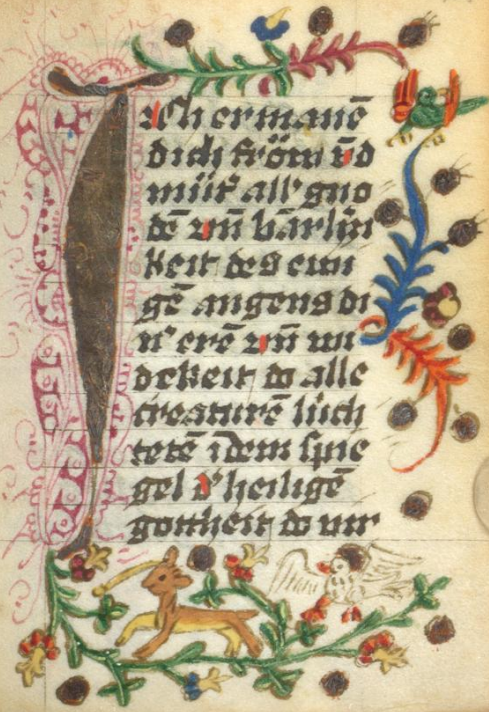 Ich ermanē
dich fröw vn̄d
mūt' all' gno
dē vn̄
keit des ewi
gē angens di
n' erē vn̄ wi
dekeit do alle
creaturē lüch
tetē ī dem spie
gel d' heiligē
gottheit do wir